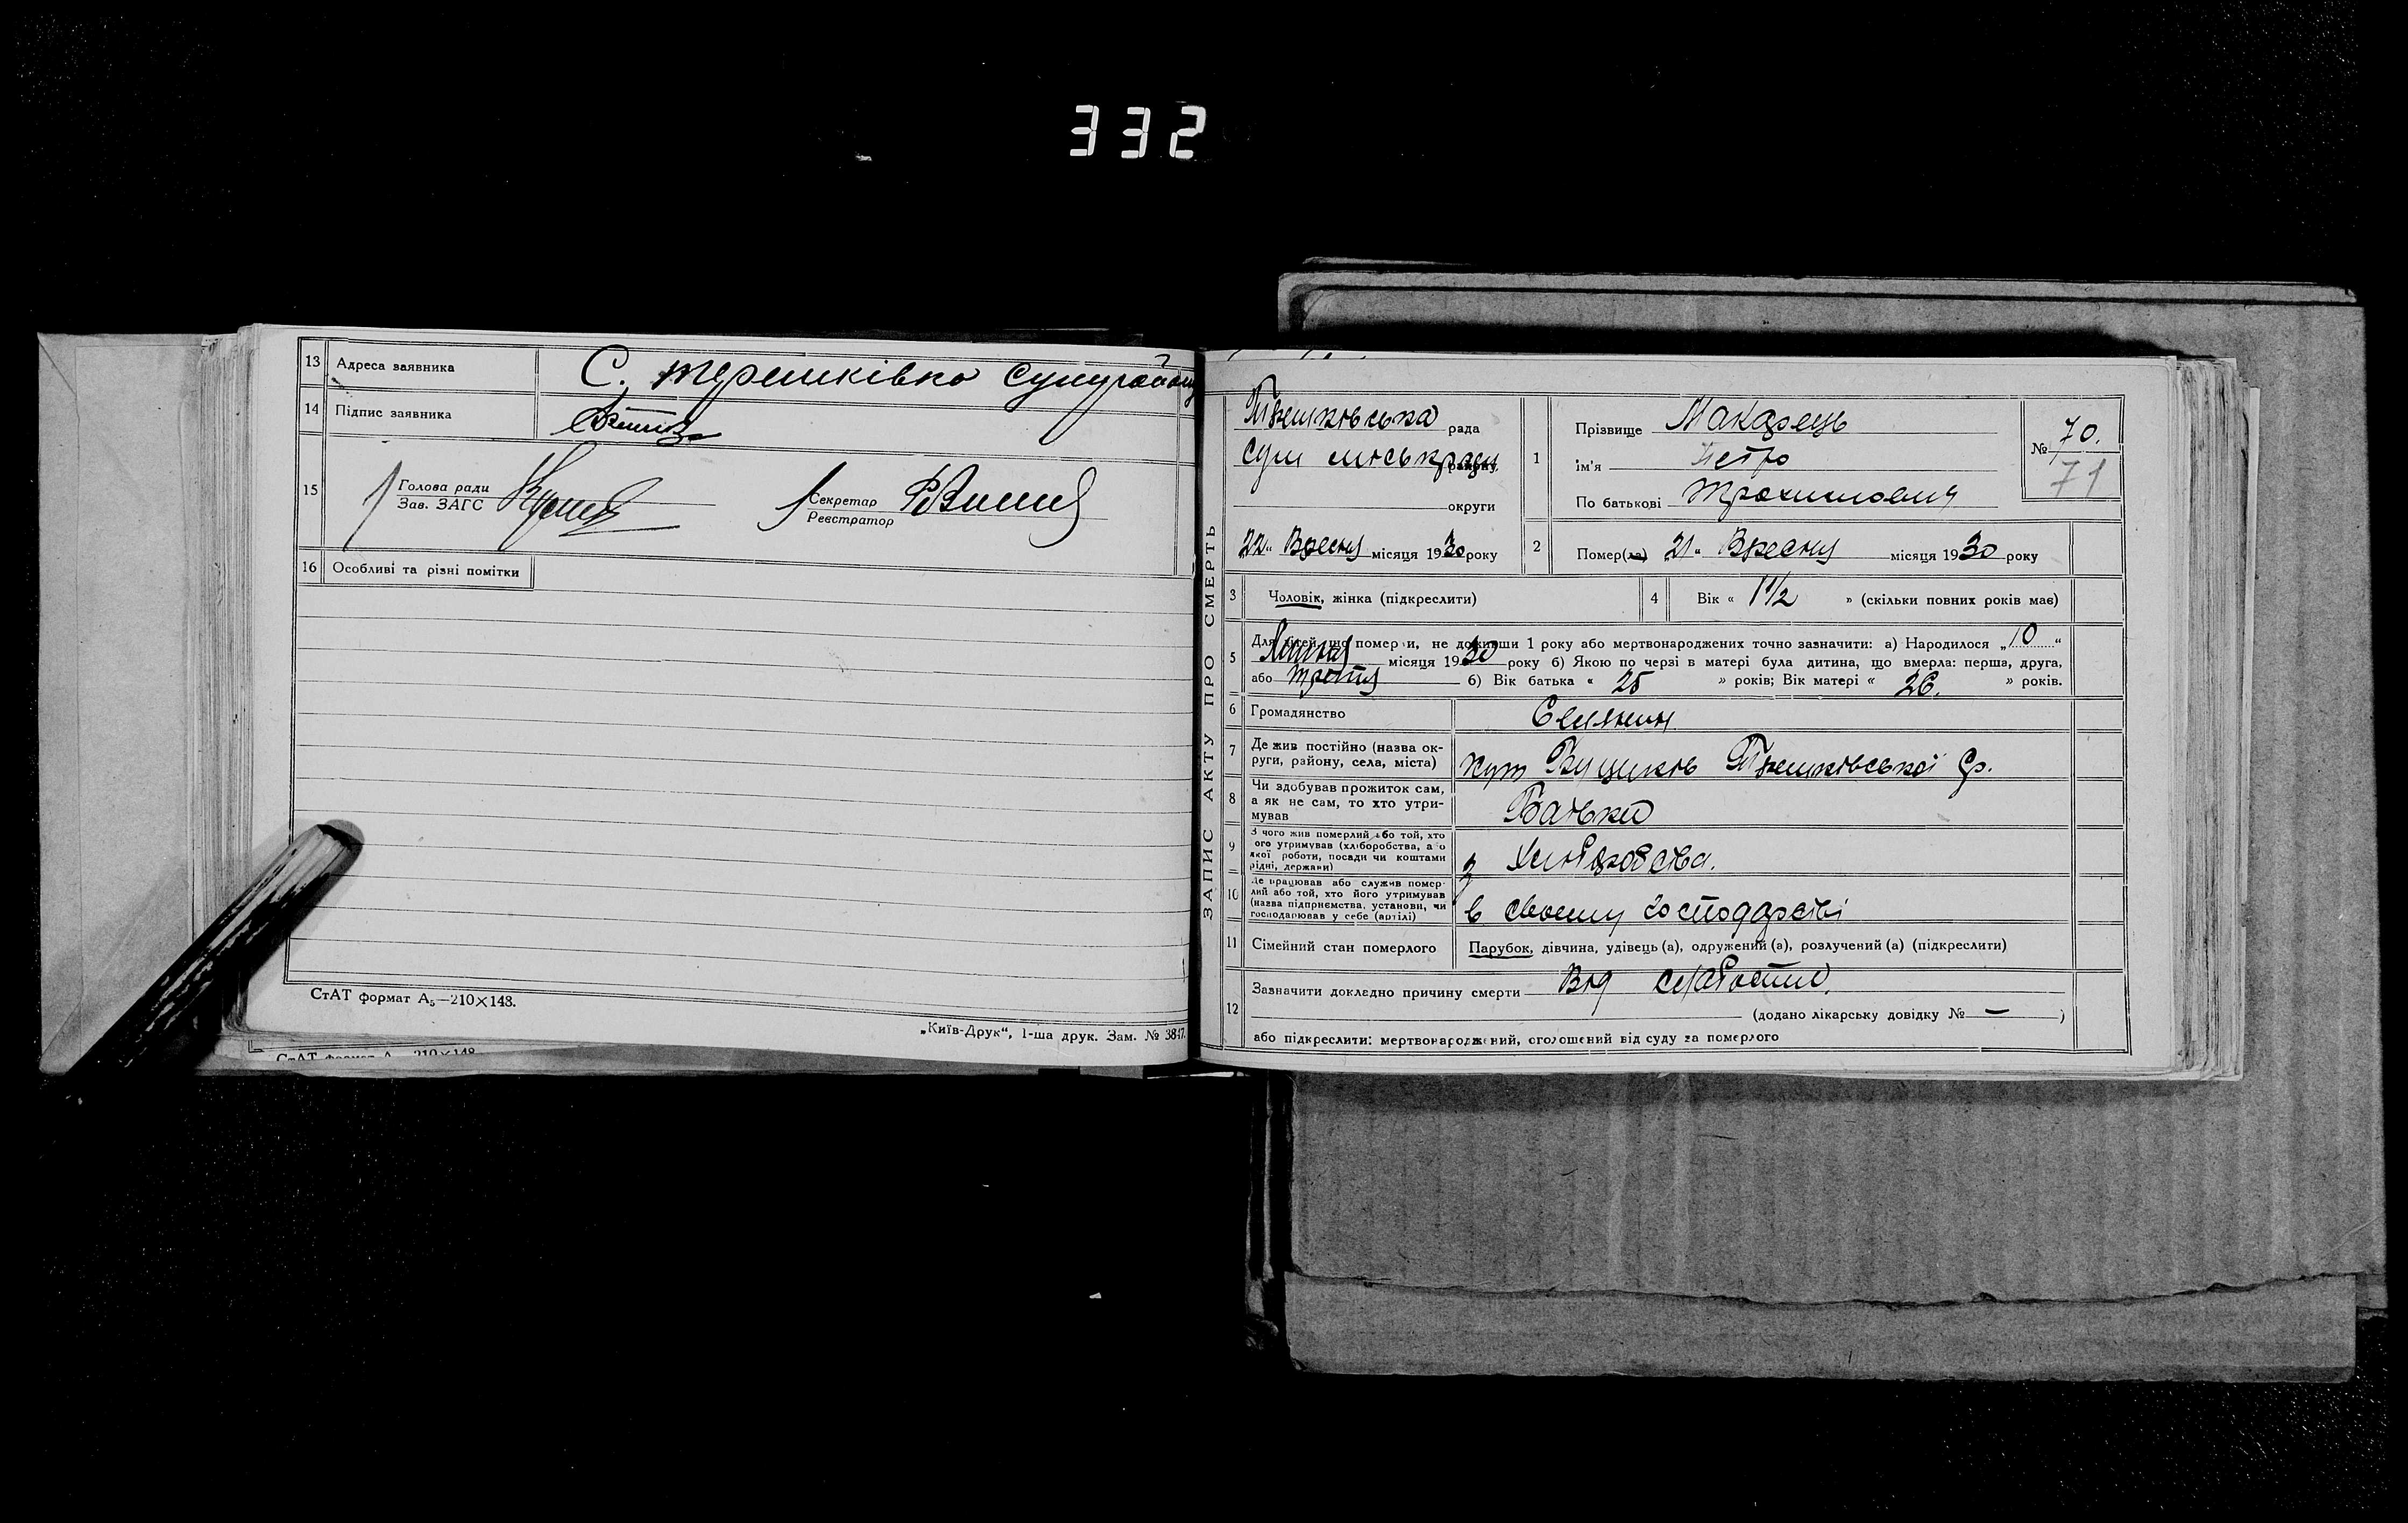 332
13 Адреса заявника С. Терешківка Сумурайону
14 Підпис заявника
15 Голова ради
Зав. ЗАГС
Секретар
Реєстратор
16 Особливі та різні помітки
СтАТ формат А₅—210×148.
„Київ-Друк“, 1-ша друк. Зам. № 3847.
СтАТ формат А 210×148
ЗАПИС АКТУ ПРО СМЕРТЬ
рада
Сум міськради району
округи
22 „ Вересня місяця 1930 року
1 Прізвище Макарець
ім'я Петро
По батькові Трохимович
№ 70.
71
2 Помер(ла) „21 „ Вересня місяця 1930 року
3 Чоловік, жінка (підкреслити)
4 Вік « 1½ » (скільки повних років має)
5 Для дітей, що померли, не доживши 1 року або мертвонароджених точно зазначити: а) Народилося „10“
Липня місяця 1930 року б) Якою по черзі в матері була дитина, що вмерла: перша, друга,
або третя б) Вік батька « 25 » років; Вік матері « 26. » років.
6 Громадянство Селянин
7 Де жив постійно (назва округи, району, села, міста) хут
8 Чи здобував прожиток сам,
а як не сам, то хто утримував Батько
9 З чого жив померлий або той, хто
його утримував (хліборобства, або
якої роботи, посади чи коштами
рідні, держави) з хліборобства.
10 Де працював або служив померлий або той, хто його утримував
(назва підприємства, установи, чи
господарював у себе (артілі) в своєму господарстві
11 Сімейний стан померлого Парубок, дівчина, удівець (а), одружений (а), розлучений (а) (підкреслити)
12 Зазначити докладно причину смерти Від слабости.
(додано лікарську довідку № — )
або підкреслити: мертвонароджений, оголошений від суду за померлого